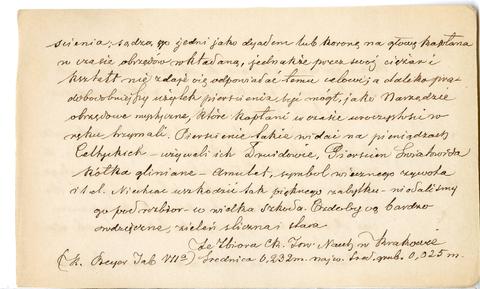 ścienia; sądzą, go jedni jako dyadem lub koronę na głowę kapłana
w czasie obrzędów wkładaną, jednakże przez swój ciężar i
kształt nie zdaje się odpowiadać temu celowi; a daleko pra-
dobodobniejszy użytek pierścienia być mógł, jako Narzędzie
obrzędowe mystyczne, które kapłani w czasie uroczystości w
ręku trzymali. Pierścienie takie widać na pieniądzach
Celtyckich - używali ich Druidowie, Pierścień Światowida
Kółka gliniane - Amulet, symbol wiecznego żywota
it.d. Niechcąc uszkodzić tak pięknego zabytku - nie daliśmy
go pod rozbiór - w wielka szkoda. Ozdoby są bardzo
wdzięczne, zieleń śliczna i stara
Ze Zbioru Ck. Tow. Nauk. w Krakowie
(K. Beyer Tab VIIa) Średnica 0,232m. najw. śred. grub. 0,025 m.